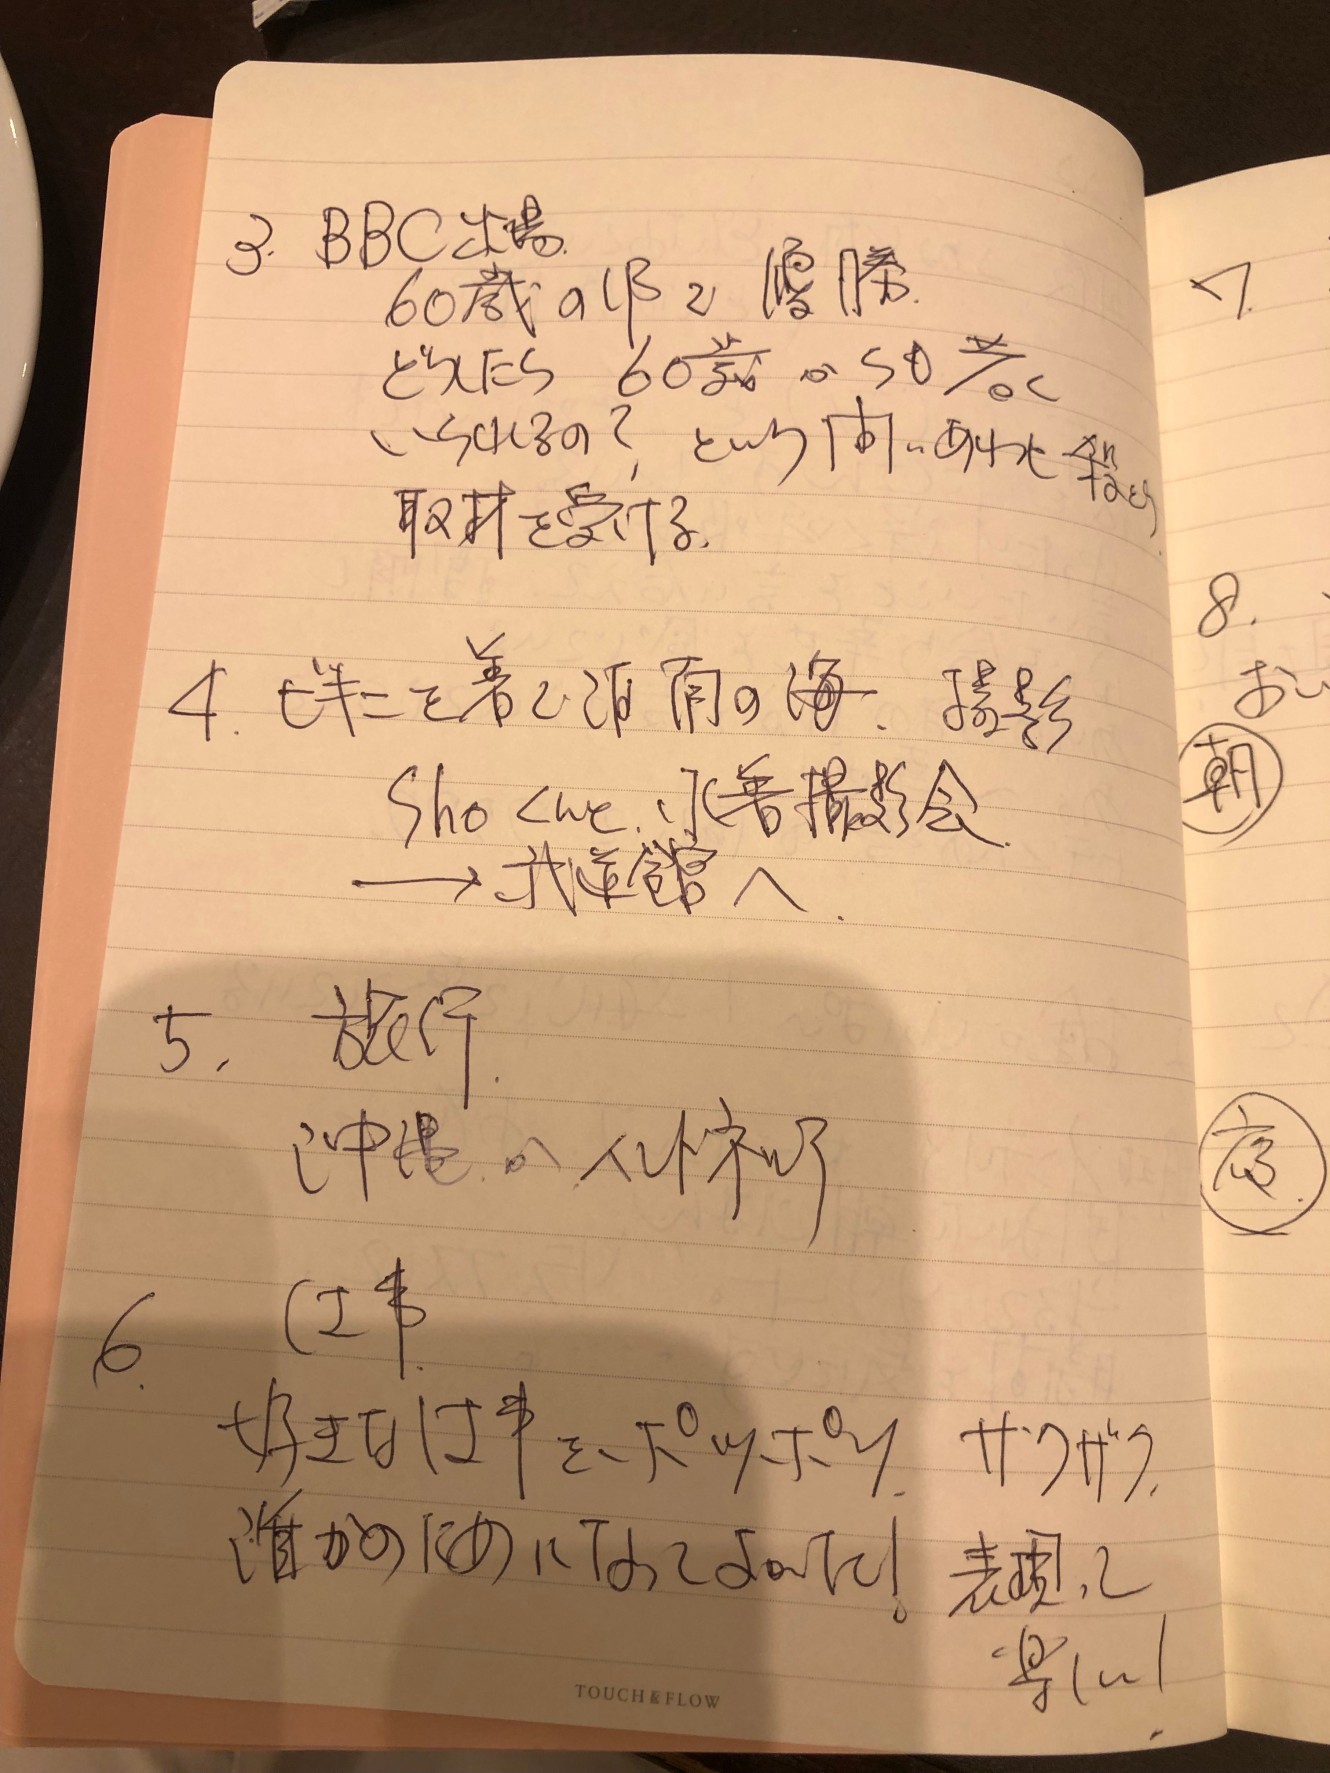 3. BBC出場.
60歳の部で優勝.
どうしたら 60歳から50若く
いられるの? という問いあわせ殺とう.
取材を受ける.
4. ビキニを着て泊 南の海. 撮影
Sho Cwe. 水着撮影会.
→武道館へ.
5. 旅行.
沖縄 か インドネシア
6. 仕事.
好きな仕事を、ポツポツ. サクザク.
誰かのためになってよかった! 表現って
楽しい!
TOUCH & FLOW
7.
8.
朝
夜.